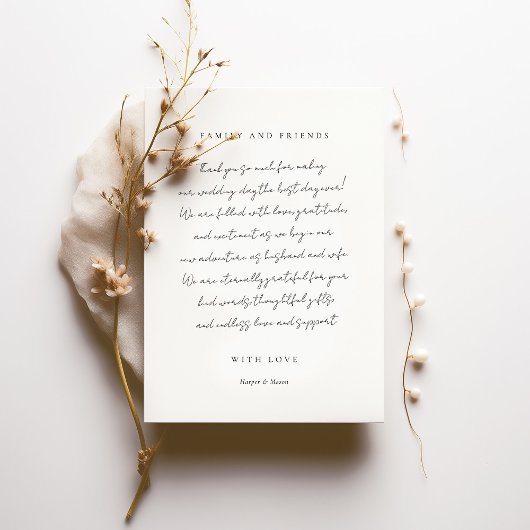 FAMILY AND FRIENDS
Thank you so much for making
our wedding day the best day ever!
We are filled with love, gratitude,
and excitement as we begin our
new adventure as husband and wife.
We are eternally grateful for your
kind words, thoughtful gifts,
and endless love and support
WITH LOVE
Harper & Mason